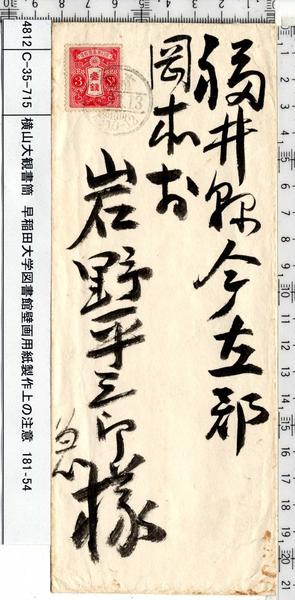 福井県今立郡
岡本村
岩野平三郎様
急
3 3
4812 C-35-715 横山大観書簡 早稲田大学図書館壁画用紙製作上の注意 181-54